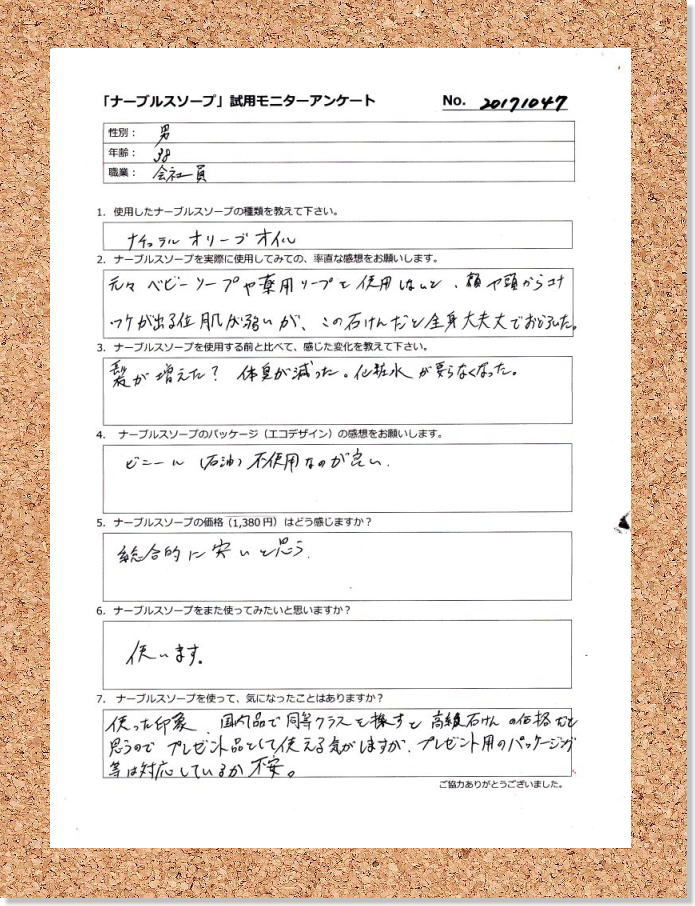 「ナーブルスソープ」試用モニターアンケート No. 20171047
性別： 男
年齢： 38
職業： 会社員
1. 使用したナーブルスソープの種類を教えて下さい。
ナチュラル オリーブ オイル
2. ナーブルスソープを実際に使用してみての、率直な感想をお願いします。
元々 ベビーソープや薬用ソープを使用しないと、顔や頭からコナ
ワケが出る位肌が弱いが、この石けんだと全身大丈夫でおどろいた。
3. ナーブルスソープを使用する前と比べて、感じた変化を教えて下さい。
髪が増えた？ 体臭が減った。化粧水が要らなくなった。
4. ナーブルスソープのパッケージ（エコデザイン）の感想をお願いします。
ビニール（石油）不使用なのが良い.
5. ナーブルスソープの価格（1,380 円）はどう感じますか？
総合的に安いと思う.
6. ナーブルスソープをまた使ってみたいと思いますか？
使います。
7. ナーブルスソープを使って、気になったことはありますか？
使った印象、国内品で同等クラスを探すと 高級石けんの価格だと
思うので プレゼント品として使える気がしますが、プレゼント用のパッケージング
等は対応しているか 不安。
ご協力ありがとうございました。